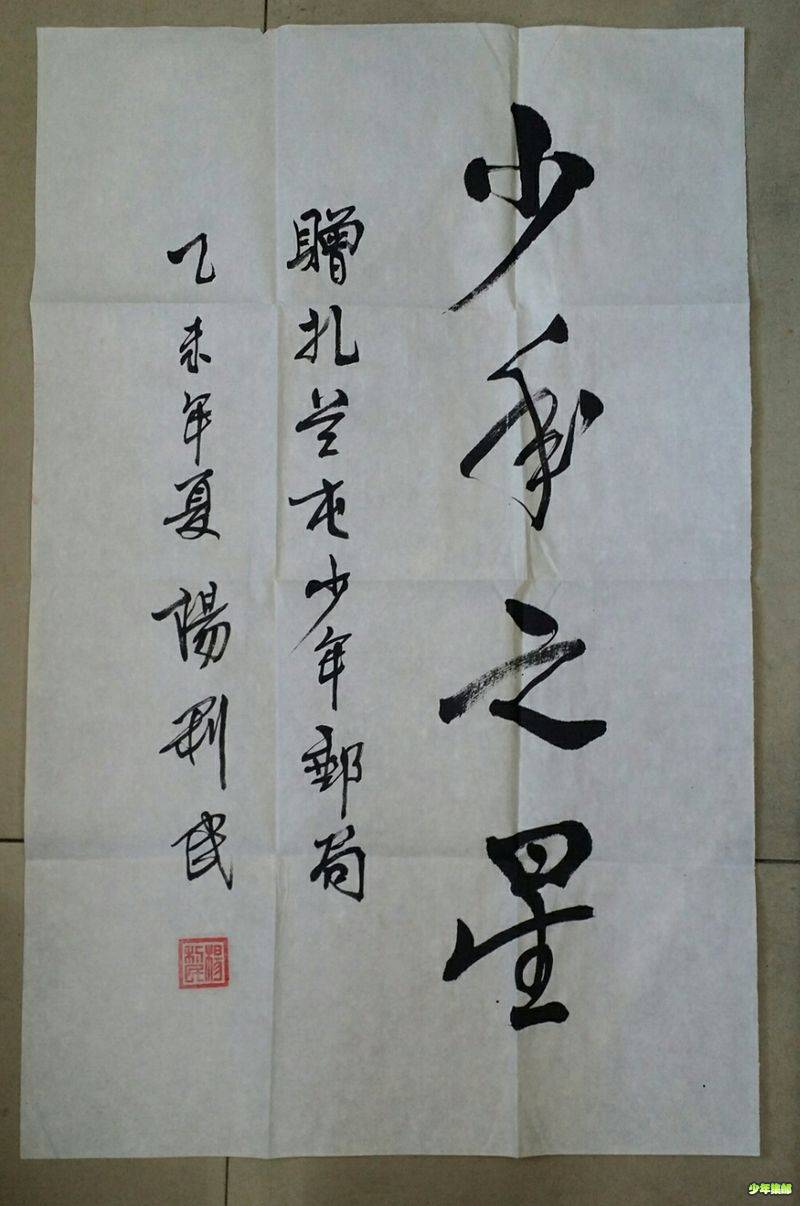 少年之星
贈扎兰屯少年郵局
乙未年夏 楊利民
楊利民
少年集邮